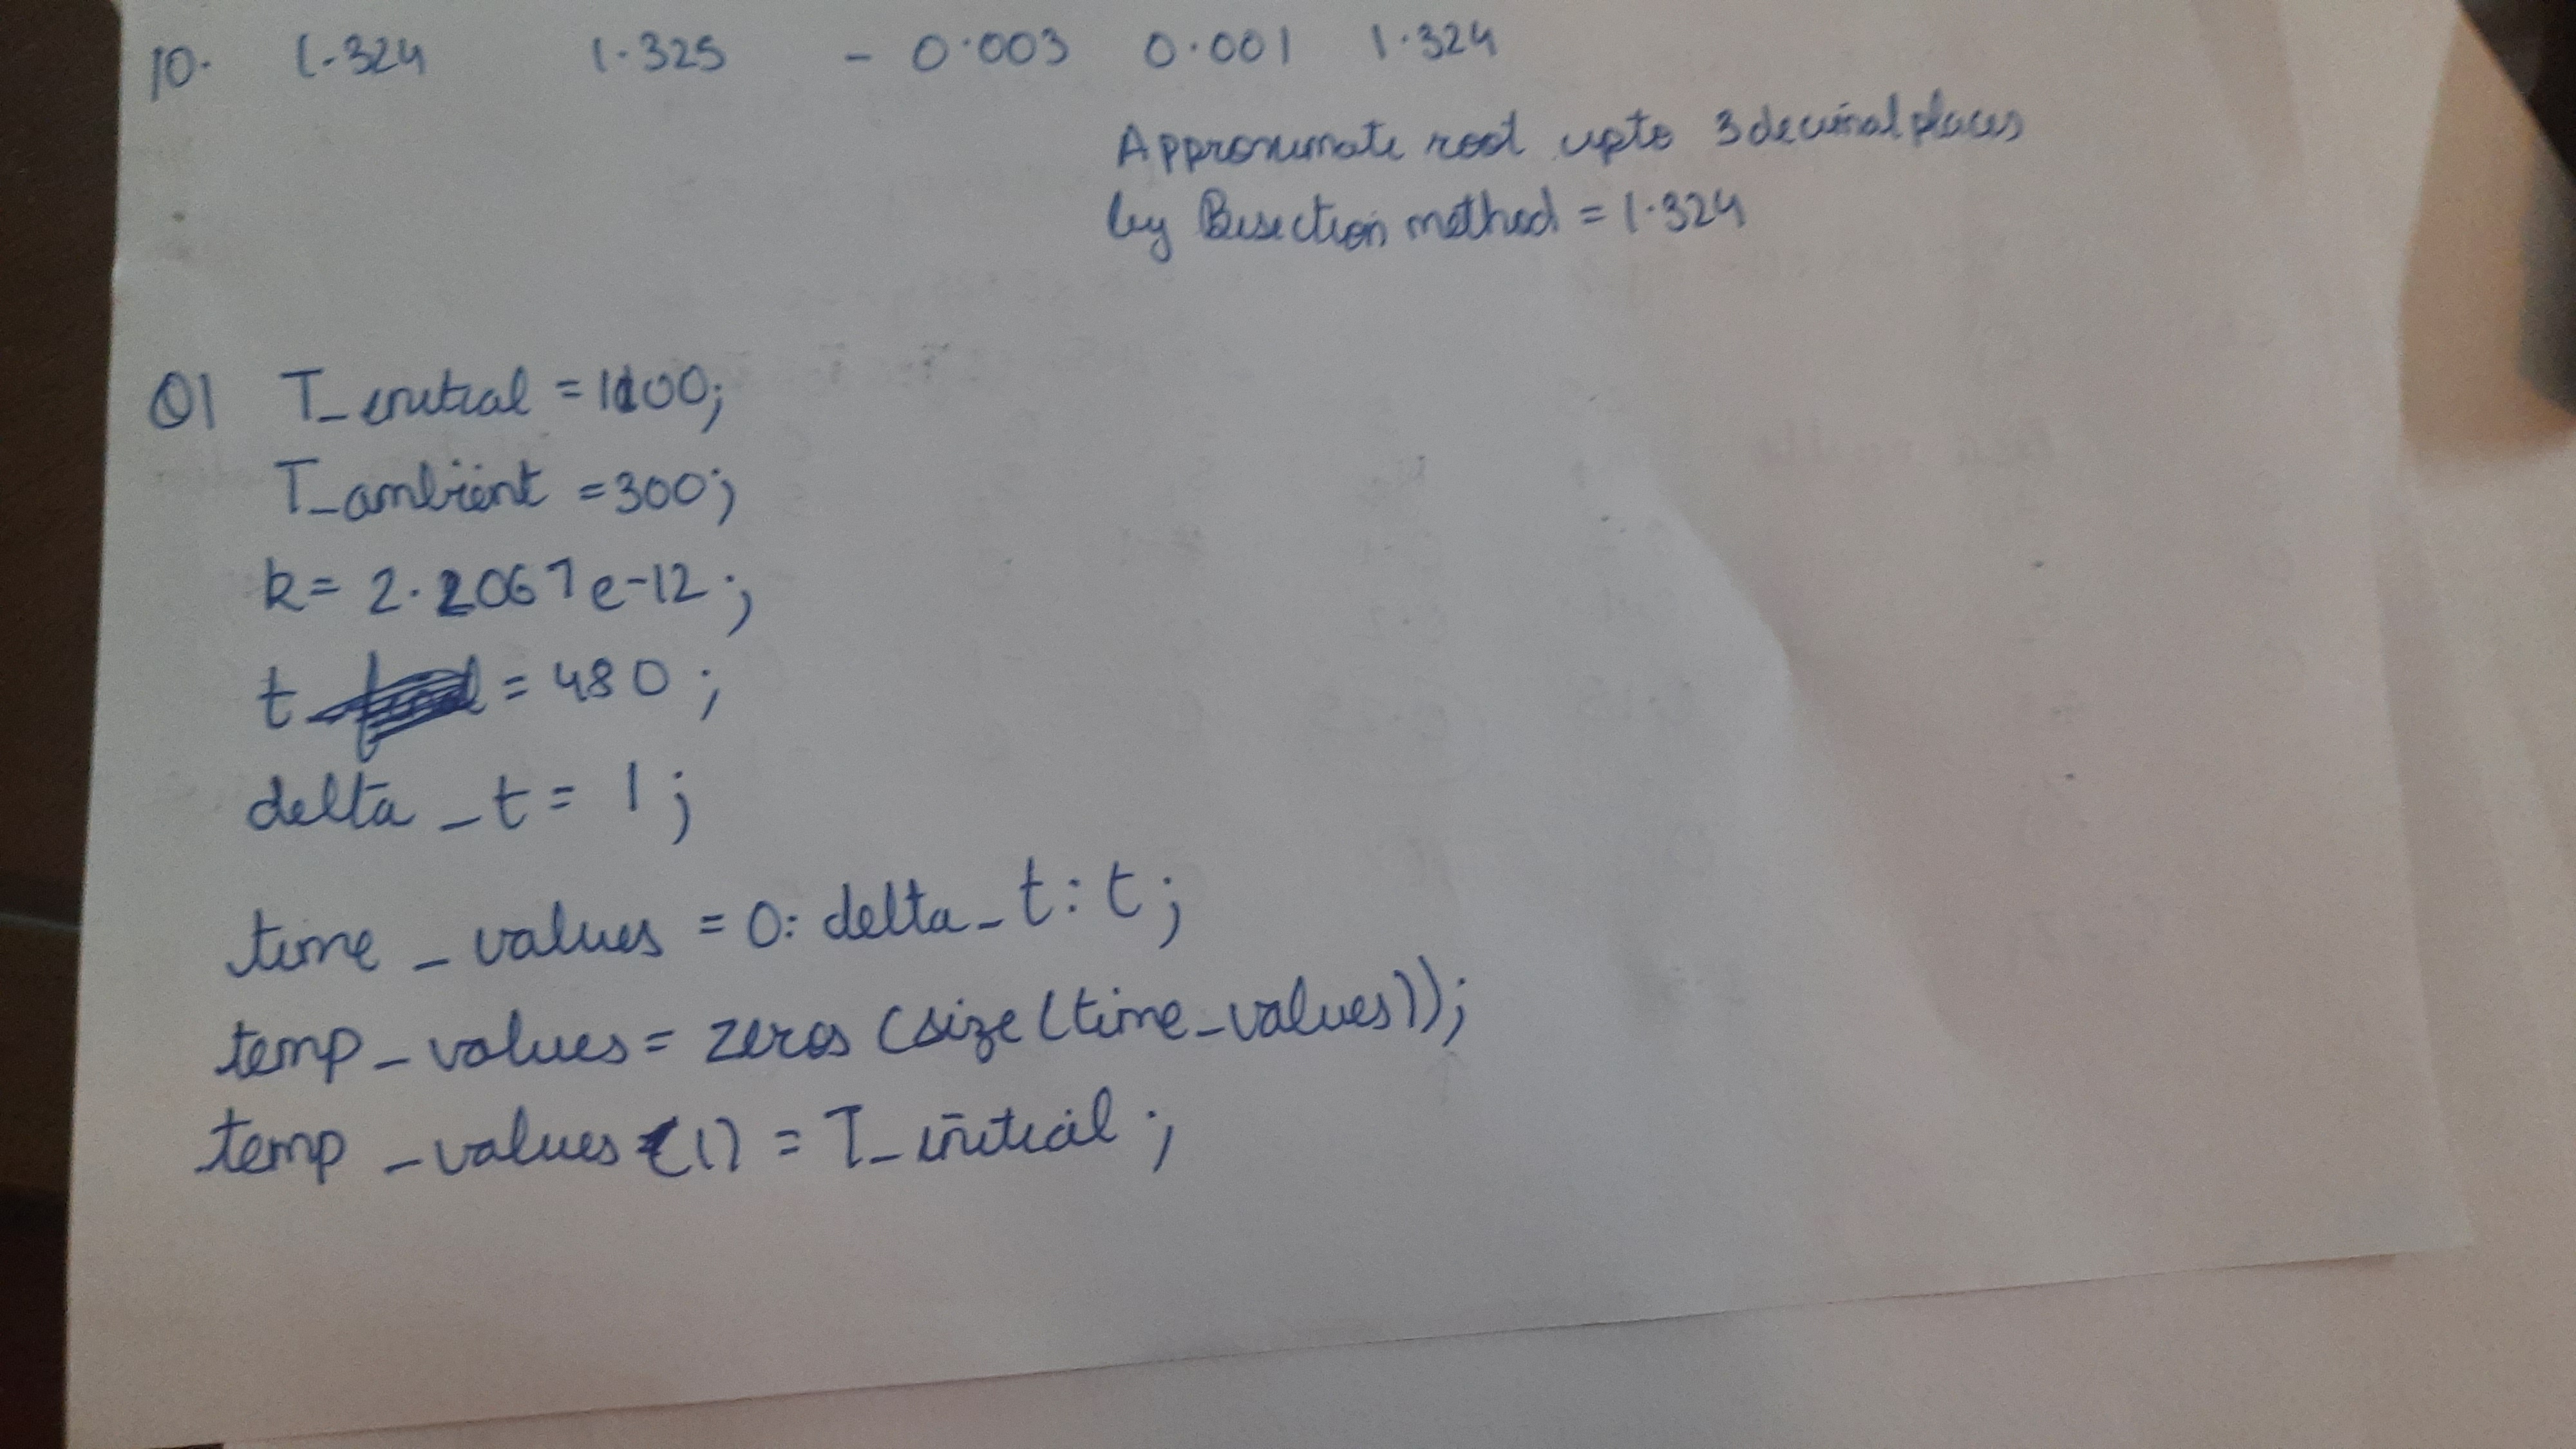 10. 1.324 1.325 - 0.003 0.001 1.324
Approximate root upto 3 decimal places
by Bisection method = 1.324
Q1 T_initial = 1200;
T_ambient = 300;
k = 2.2067e-12;
t = 480;
delta_t = 1;
time_values = 0: delta_t: t;
temp_values = zeros (size (time_values));
temp_values (1) = T_initial;